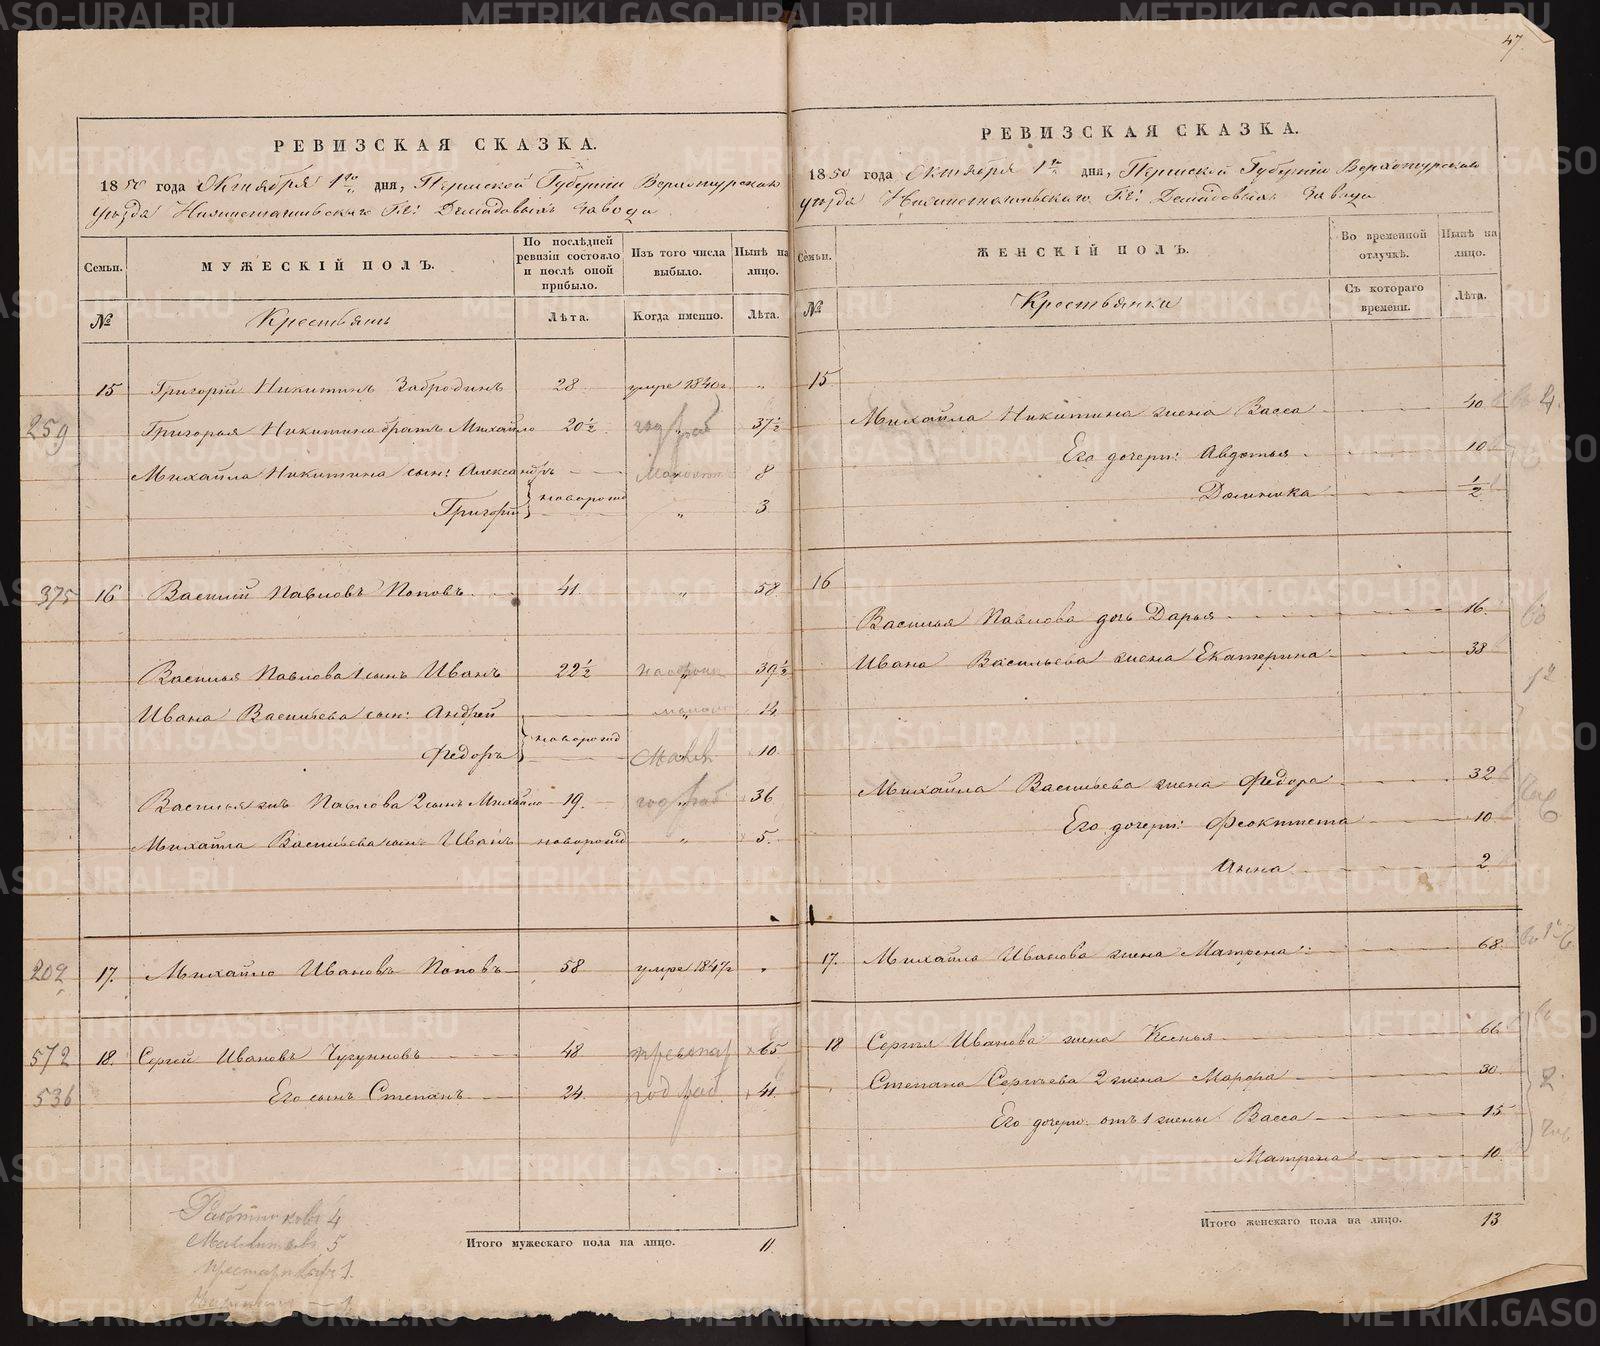 47
РЕВИЗСКАЯ СКАЗКА.
1850 года Октября 1го дня, Пермской Губернiи Верхотурскаго
уѣзда Нижнетагильскаго Гг: Демидовыхъ завода
Семьи.
МУЖЕСКIЙ ПОЛЪ.
По послѣдней ревизiи состояло и послѣ оной прибыло.
Изъ того числа выбыло.
Нынѣ на лицо.
№
Крестьянъ
Лѣта.
Когда именно.
Лѣта.
15 Григорiй Никитинъ Забродинъ 28 умре 1840г. "
259 Григорья Никитина братъ Михайло 20½ год раб 37½
Михайла Никитина сын: Александръ 8
новорожд
Григорiй " 3
375 16 Василiй Павловъ Поповъ 41. " 58.
Василья Павлова 1 сынъ Иванъ 22½ 39½
Ивана Васильева сын: Андрей 14
новорожд
Федоръ 10.
Василья жъ Павлова 2 сынъ Михайло 19. год раб 36
Михайла Васильева сынъ Иванъ новорожд " 5.
202 17. Михайло Ивановъ Поповъ 58 умре 1847г "
572 18. Сергей Ивановъ Чугуновъ 48 65
536 Его сынъ Степанъ 24. год раб 41.
Работниковъ 4
5
1.
Итого мужескаго пола на лицо. 11.
РЕВИЗСКАЯ СКАЗКА.
1850 года Октября 1го дня, Пермской Губернiи Верхотурскаго
уѣзда Нижнетагильскаго Гг: Демидовыхъ завода
Семьи.
ЖЕНСКIЙ ПОЛЪ.
Во временной отлучкѣ.
Нынѣ на лицо.
№
Крестьянки
Съ котораго времени.
Лѣта.
15
Михайла Никитина жена Васса 40
Его дочери: Авдотья 10
Домника ½
16
Василья Павлова дочь Дарья 16.
Ивана Васильева жена Екатерина 38
Михайла Васильева жена Федора 32
Его дочери: Феоктиста 10
Анна 2
17. Михайла Иванова жена Матрена 68.
18 Сергея Иванова жена Ксенья 66
Степана Сергѣева 2 жена Марфа 30.
Его дочери отъ 1 жены Васса 15
Матрена 10.
Итого женскаго пола на лицо. 13
METRIKI.GASO-URAL.RU